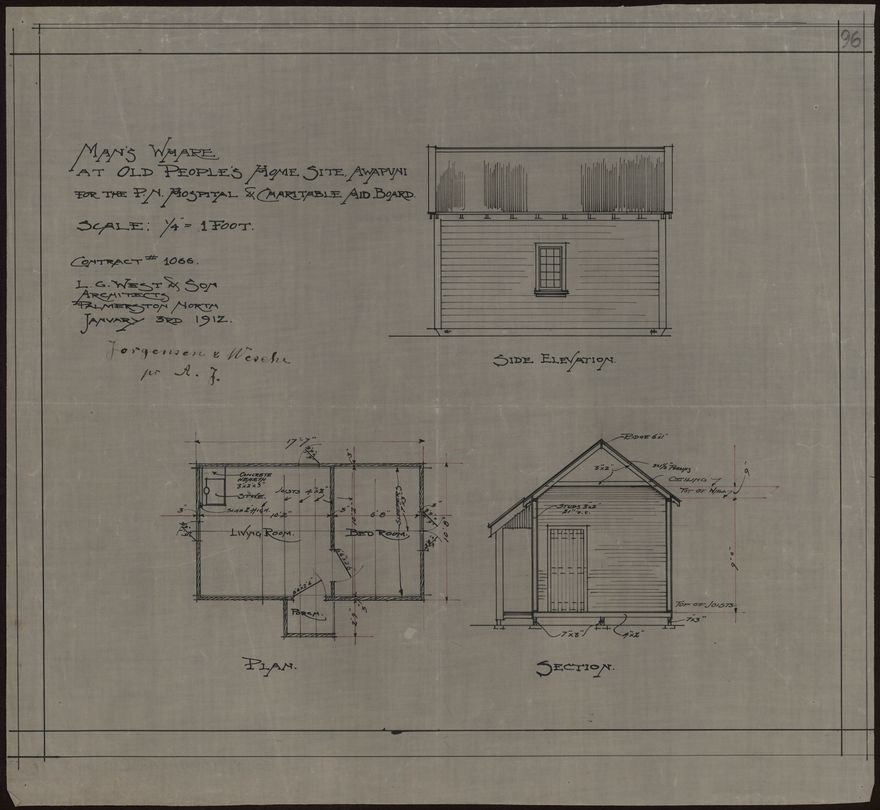 96
MAN'S WHARE.
AT OLD PEOPLE'S HOME SITE, AWAPUNI
FOR THE P.N. HOSPITAL & CHARITABLE AID BOARD.
SCALE: ¼" = 1 FOOT.
CONTRACT # 1066.
L. G. WEST & SON
ARCHITECTS
PALMERSTON NORTH
JANUARY 3RD 1912.
Jorgensen &
pr A. J.
SIDE ELEVATION.
17'-7"
CONCRETE
HEARTH
STOVE.
JOISTS 4"x2"
3"
10'2"
3"
6'8"
LIVING ROOM.
BED ROOM.
PORCH.
PLAN.
RIDGE 6"x1"
3"x2"
CEILING
TOP OF WALL
STUDS 3"x2"
TOP OF JOISTS
7"x3"
7"x3"
4"x2"
SECTION.